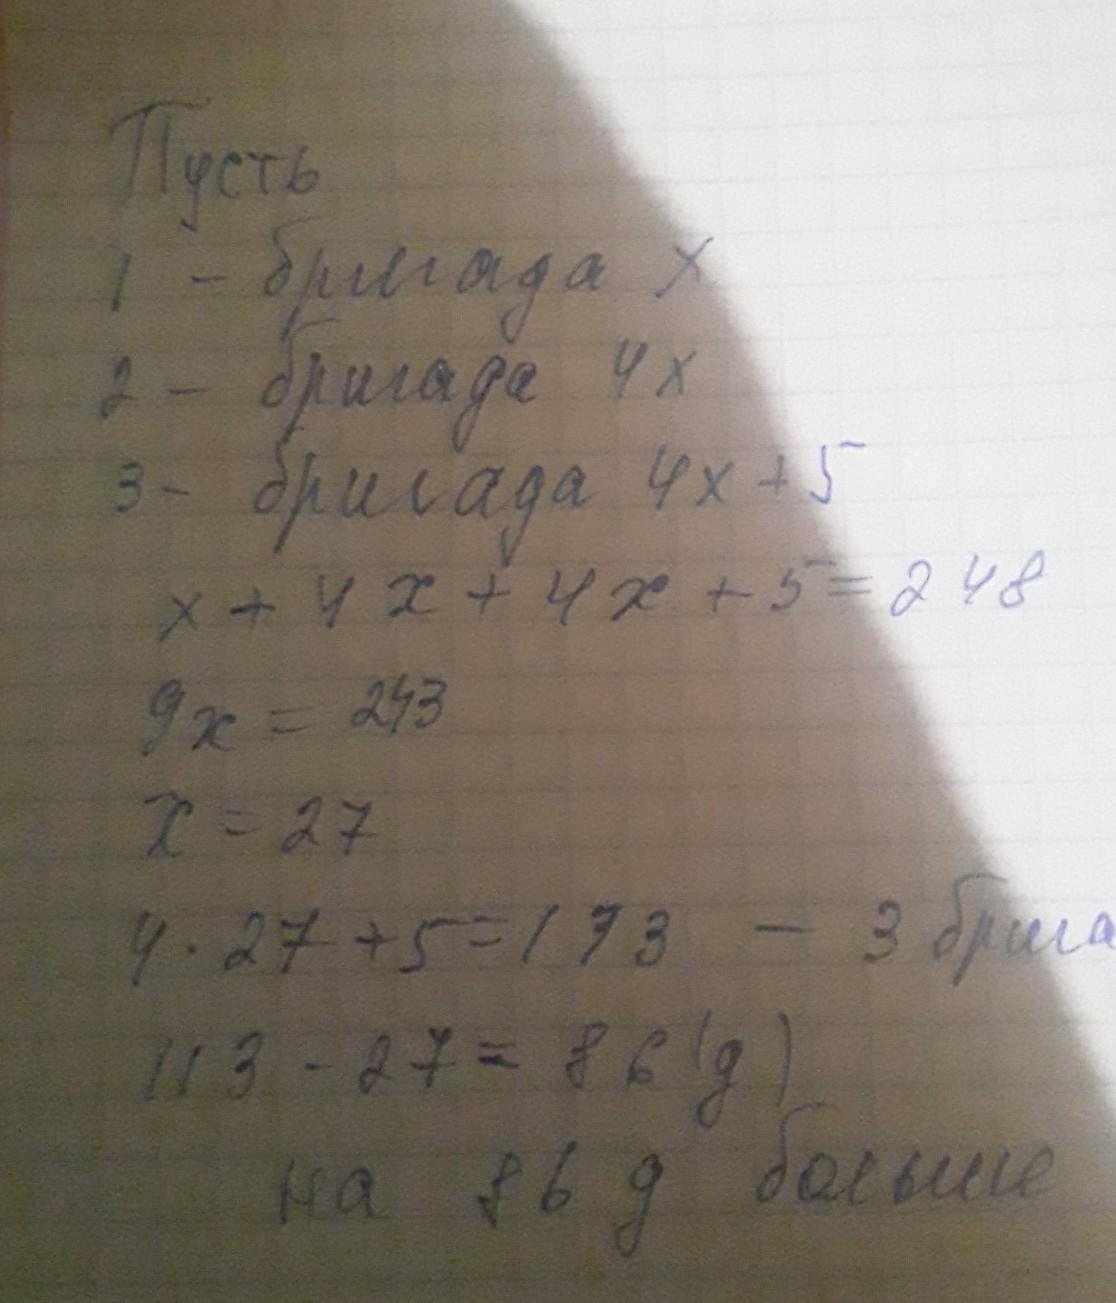 Пусть
1 - бригада x
2 - бригада 4x
3 - бригада 4x + 5
x + 4x + 4x + 5 = 248
9x = 243
x = 27
4 · 27 + 5 = 113 - 3 брига
113 - 27 = 86 (д)
на 86 д больше